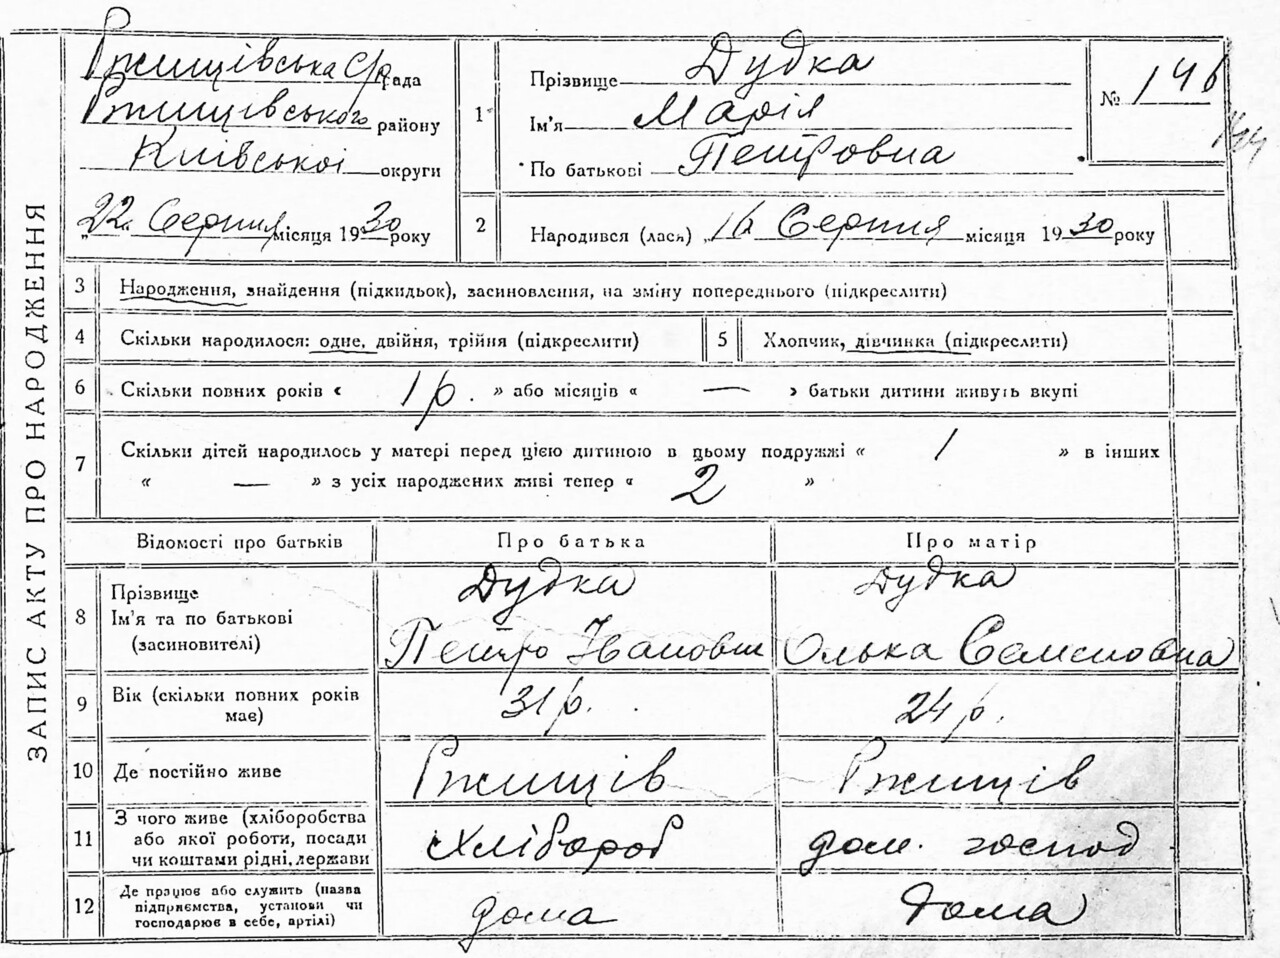 ЗАПИС АКТУ ПРО НАРОДЖЕННЯ
Ржищівська С/рада
Ржищівського району
Київської округи
„22„ Серпня місяця 1930 року
1
Прізвище Дудка
Ім'я Марія
По батькові Петровна
№ 146
144
2
Народився (лась) „16 Серпня місяця 1930 року
3 Народження, знайдення (підкидьок), засиновлення, на зміну попереднього (підкреслити)
4 Скільки народилося: одне, двійня, трійня (підкреслити)
5 Хлопчик, дівчинка (підкреслити)
6 Скільки повних років « 1 р. » або місяців « — » батьки дитини живуть вкупі
7 Скільки дітей народилось у матері перед цією дитиною в цьому подружжі « 1 » в інших
« — » з усіх народжених живі тепер « 2 »
Відомості про батьків Про батька Про матір
8 Прізвище Дудка Дудка
Ім'я та по батькові Петро Іванович Олька Семеновна
(засиновителі)
9 Вік (скільки повних років 31 р. 24 р.
має)
10 Де постійно живе Ржищів Ржищів
11 З чого живе (хліборобства
або якої роботи, посади хлібороб дом. господ
чи коштами рідні, держави
12 Де працює або служить (назва
підприємства, установи чи дома дома
господарює в себе, артілі)